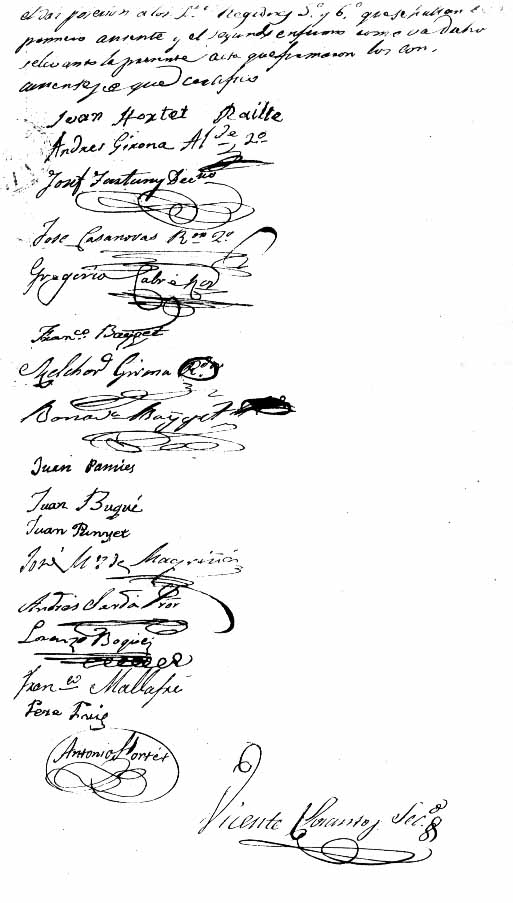 el dar posecion a los S.res Regidores 5.o y 6.o que se hallan el
primero ausente y el segundo enfermo como va dicho
se levanto la presente acta que firmaron los con,
currentes de que certifico
Juan Hortet Raille
Andres Girona Al.de 2o
Josef Fortuny Decno
Jose Casanovas R.on 2.o
Gregorio Cabré Ror
Franco. Bayget
Melchor Girona R.or
Bonava Bayget
Juan Pamies
Juan Buqué
Juan Punyet
José M.a de Magriñá
Andres Sardá Pror
Lorenzo Boqué
Fran.co Mallafré
Pera Puig
Antonio Hortet
Vicente Sec.o